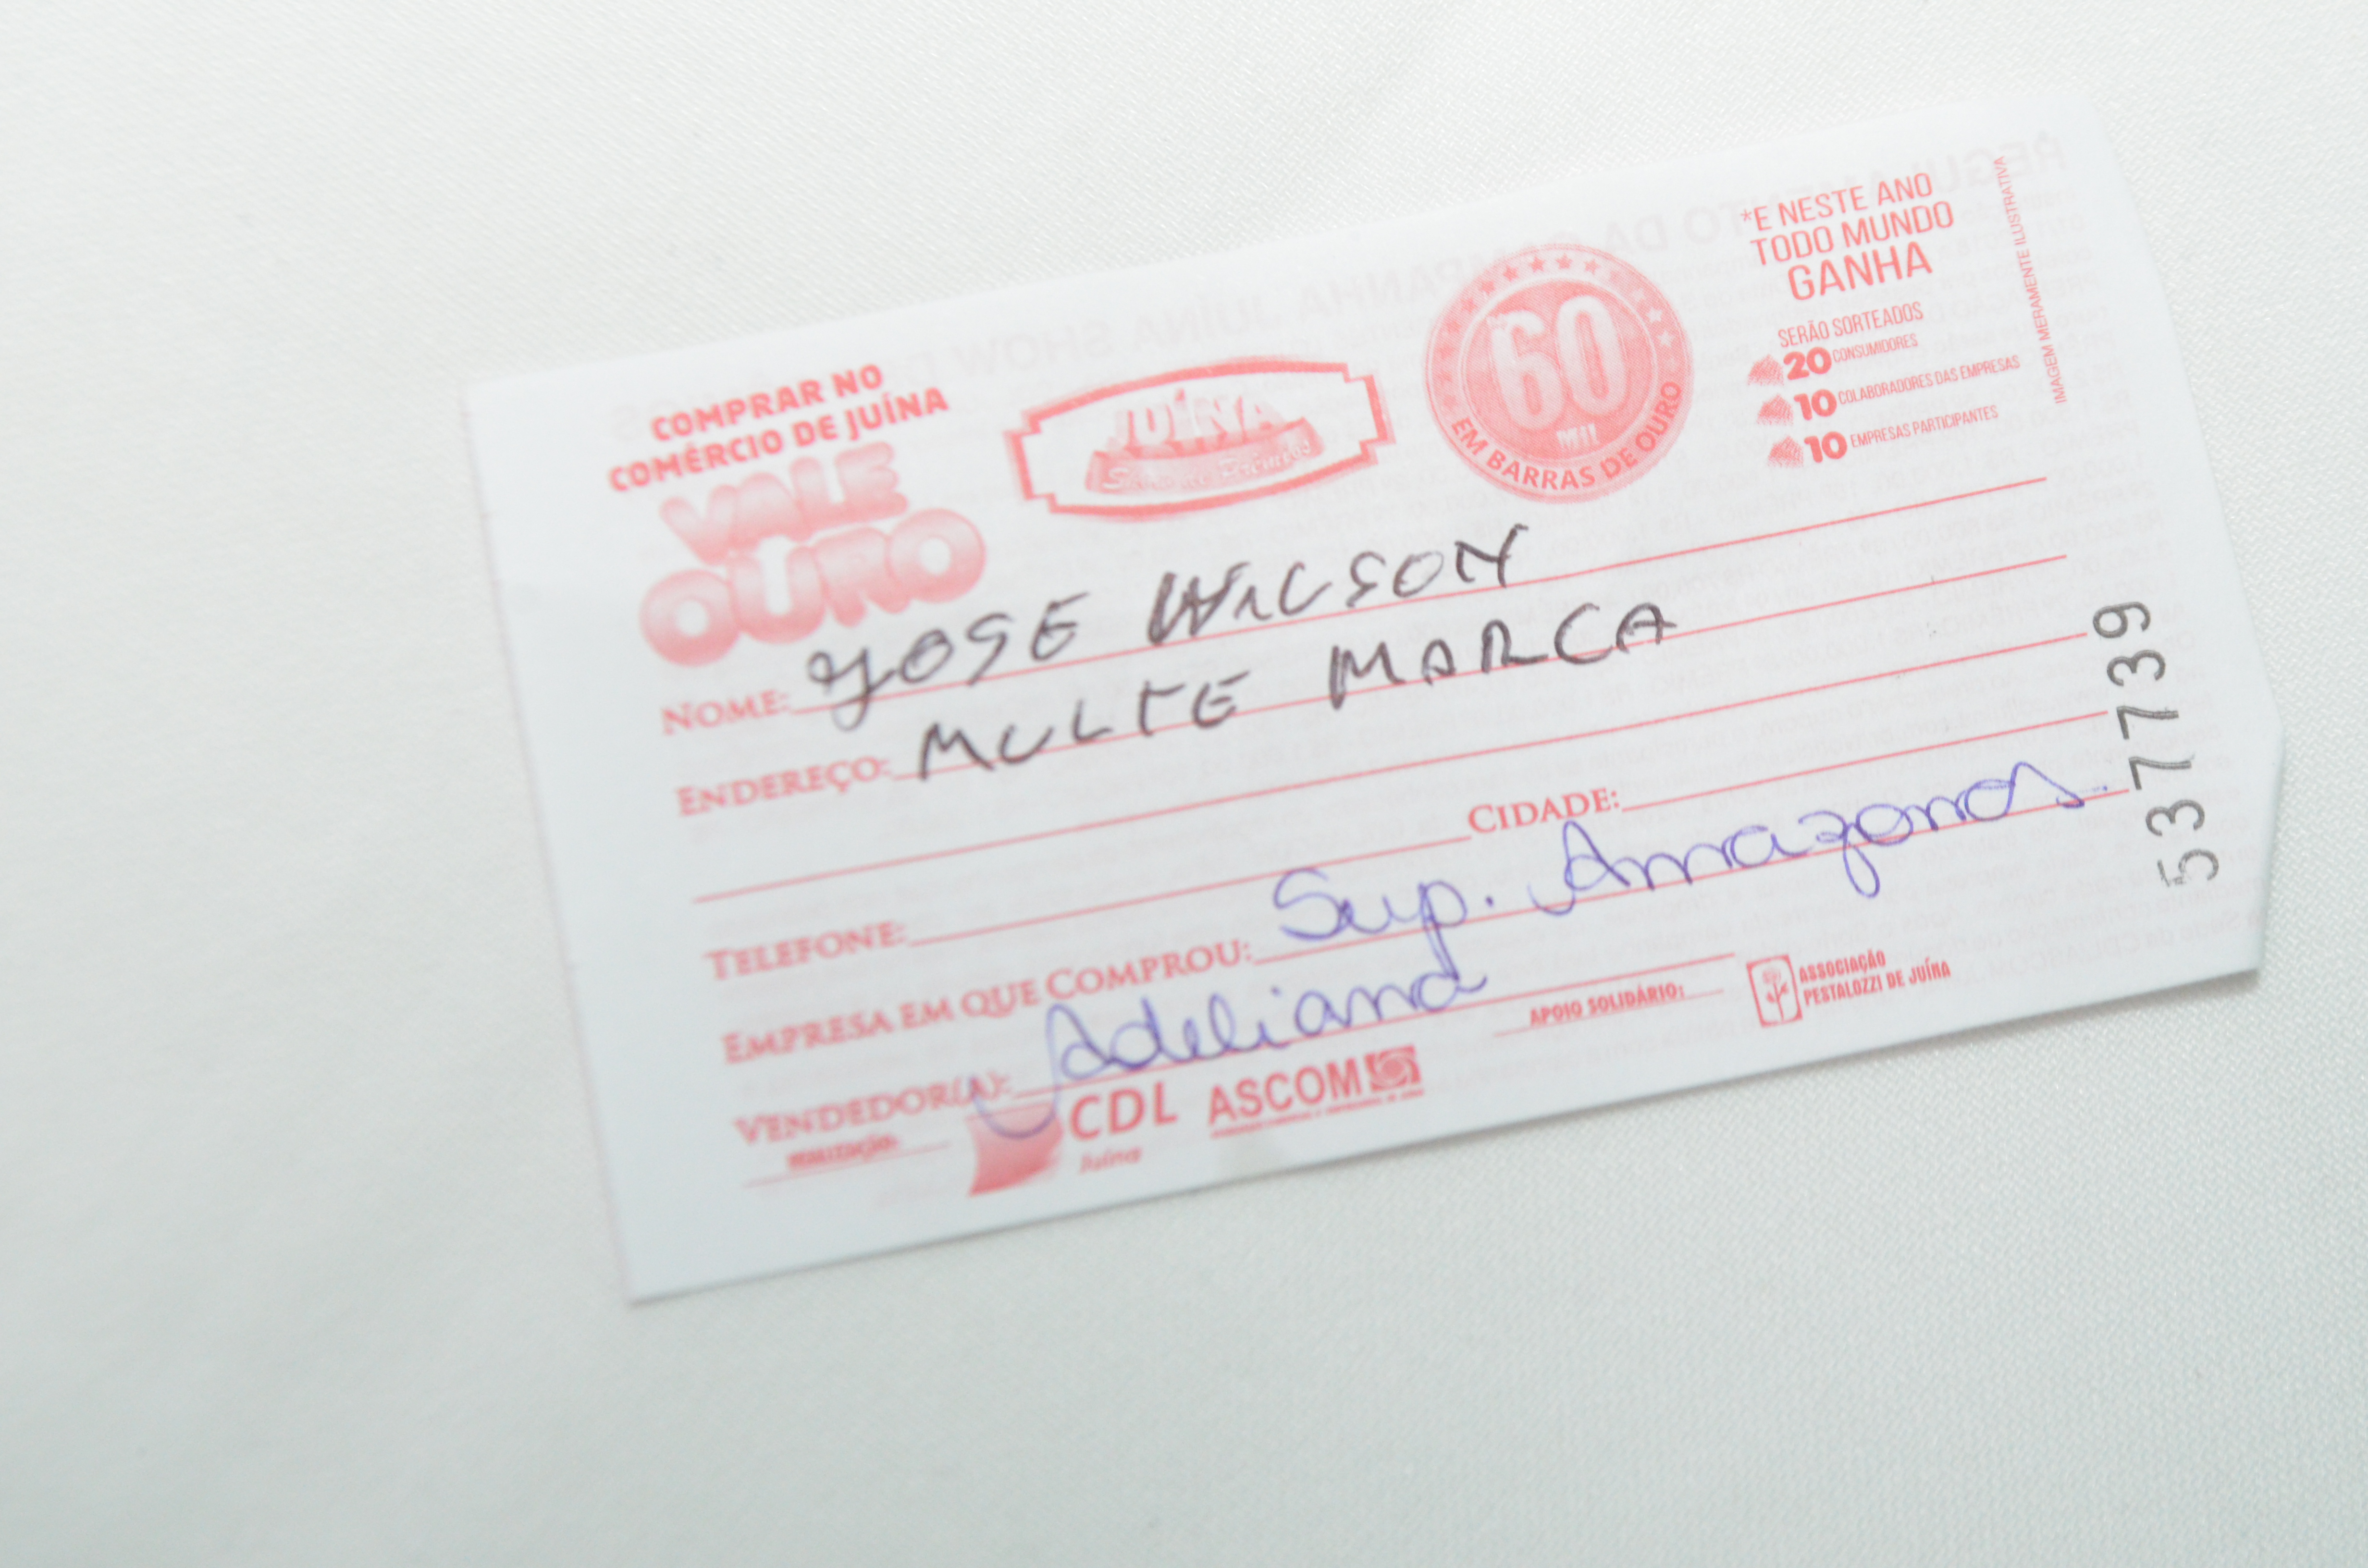 COMPRAR NO
COMÉRCIO DE JUÍNA
VALE
OURO
JUÍNA
Show de Prêmios
R$ 60 MIL
EM BARRAS DE OURO
*E NESTE ANO
TODO MUNDO
GANHA
SERÃO SORTEADOS
20 CONSUMIDORES
10 COLABORADORES DAS EMPRESAS
10 EMPRESAS PARTICIPANTES
IMAGEM MERAMENTE ILUSTRATIVA
NOME: JOSE WILSON
ENDEREÇO: MULTE MARCA
CIDADE:
TELEFONE:
EMPRESA EM QUE COMPROU: Sup. Amazonas.
VENDEDOR(A): Adeliana
REALIZAÇÃO:
CDL
Juína
ASCOM
APOIO SOLIDÁRIO:
ASSOCIAÇÃO
PESTALOZZI DE JUÍNA
537739